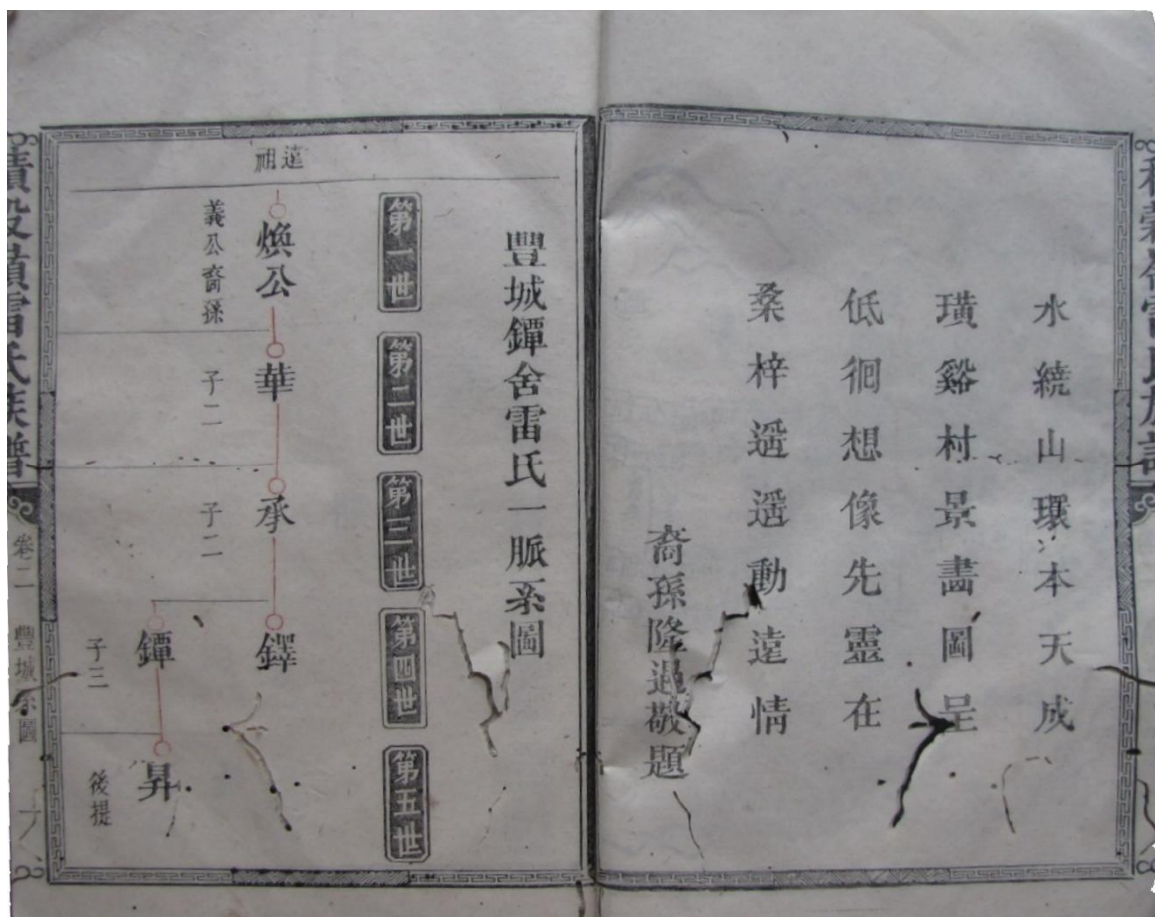 水繞山環本天成
璜谿村景畵圖呈
低徊想像先靈在
桒梓遥遥動遠情
裔孫隆過敬題
豐城鐔舍雷氏一脈系圖
第一世
第二世
第三世
第四世
第五世
遠祖
煥公
華
承
鐸
義公裔孫
子二
子二
鐔
昇
子三
後提
雷氏族譜
卷二
豐城系圖